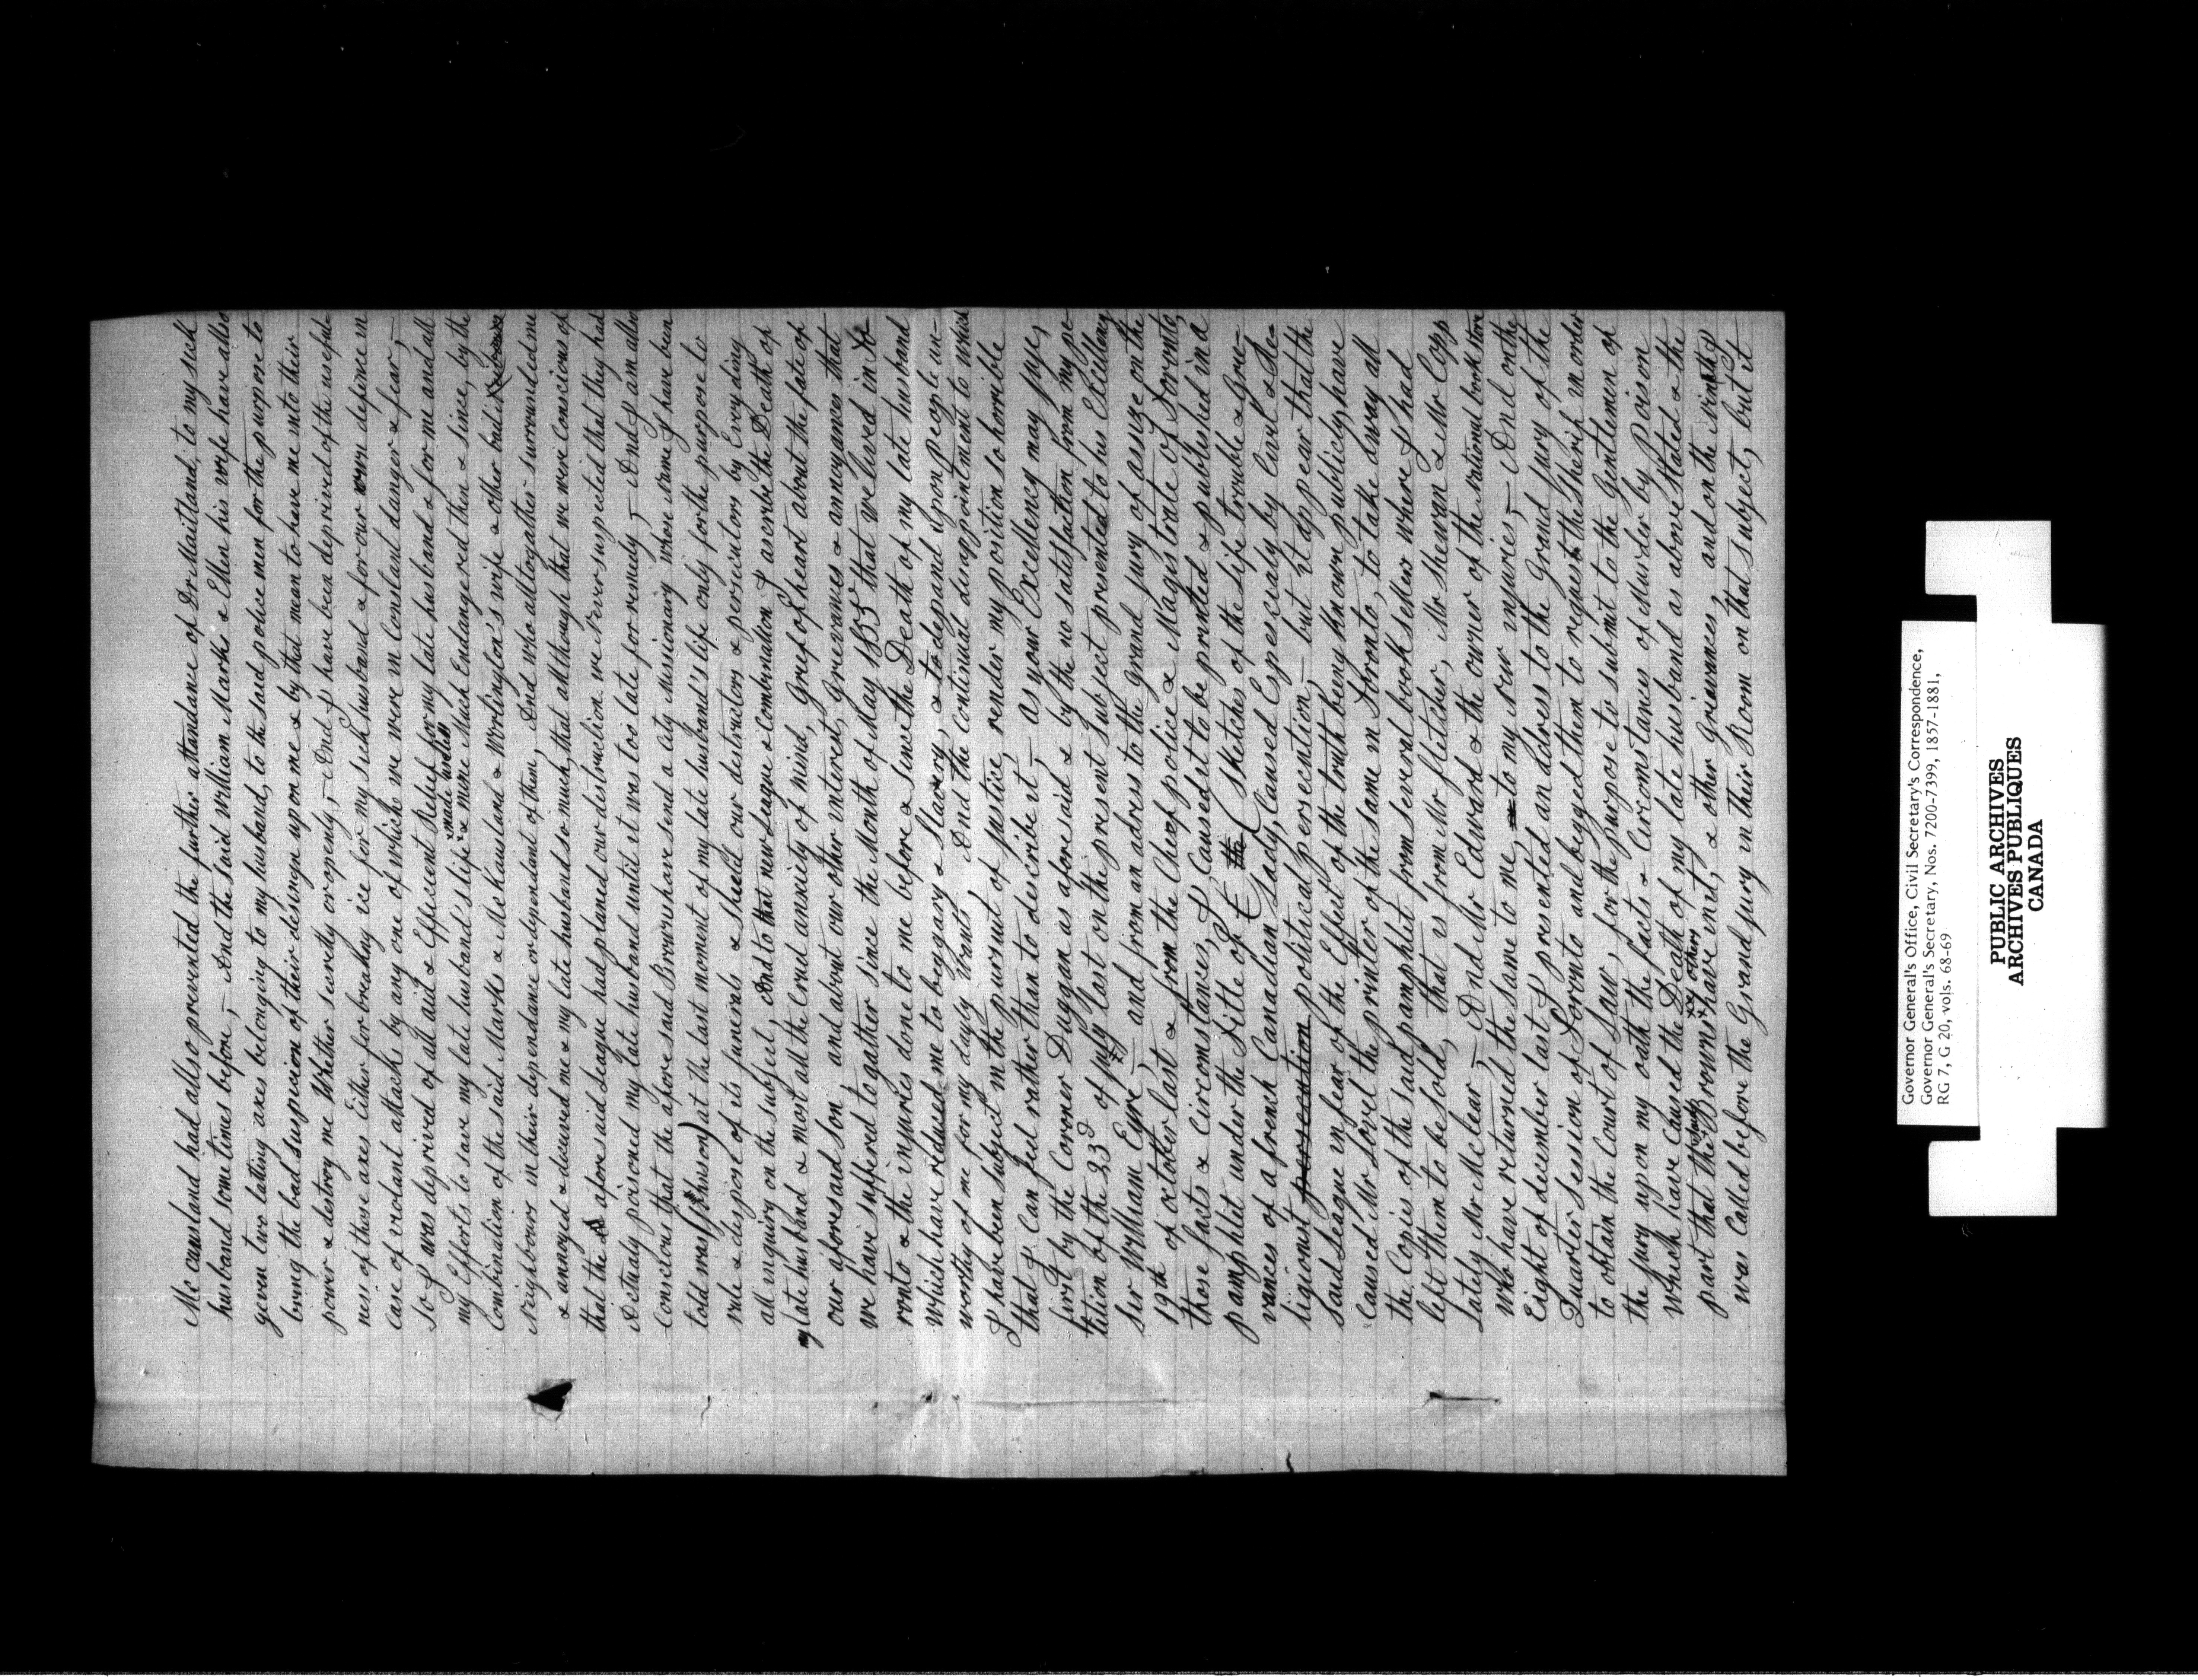 Mc causland had allso prevented the further attandance of Dr Maitland, to my sick
husband some times before, – And the said William Marks & Ellen his wife have allso
geven two lathing axes belonging to my husband, to the said police men for the purpose to
bring the bad suspicion of their desingn upon me & by that mean to have me into their
power & destroy me Whether secretly or openly, – And I have been deprived of the useful-
ness of those axes Either for breaking ice for my sick husband & for our own defence in
case of violant attacks by any one of which we were in Constand danger & fear, –
So I was deprived of all aid & Efficient Relief for my late husband & for me and all
my Efforts to save my late husband's life x made useless x & mine Much Endangered then & since, by the
Combination of the said Marks & Mc Kausland & Worlington's wife & other bad
Neighbours in their dependance or dependant of them, And who altogather surrounded me
& annoyed & deceived me & my late husband so much, that although that we were Conscious of
that the afore said League had planed our destruction we Never suspected that they had
Actualy poisoned my late husband until it was too late for remedy, – And I am allso
Conscious that the afore said Brown have send a City Missionary whose Name I have been
told was (Johnson) at the last moment of my late husband's life only for the purpose to
rule & dispose of its funerals & Shield our destructors & persecutors by Evveyding
all inquiry on the subject, And to that new League & Combination I ascribe the Death of
my late husband & most all the Cruel anxcity of mind, Grief of heart about the fate of
our aforesaid son and about our other interest, Greevances & annoyances that
we have suffered to gather since the Month of May 1855 that we lived in To-
ronto & the injuries done to me before & Since the Death of my late husband
Which have reduced me to beggary & Slavery, & to depand upon people un-
worthy of me for my dayly Wants, And the Continual disappointment to which
I have been subject in the pursuit of justice, render my position so horrible
that I Can feel rather than to describe it, – as your Excellency may juge,
first by the Coroner Duggan as afore said & by the no satisfaction from my pe-
tition of the 23d of july last on the present Subject presented to his Excellency
Sir William Eyre, – and from an adress to the grand jury of assize on the
19th of october last & from the Cheef police & Magistrate of Toronto,
those facts & Circomstances, I Caused to be printed & published in a
pamphlet under the Title of, ( Sketches of the life Trouble & Gree-
vances of a french Canadian Lady, Caused Especialy by Civil & Re-
ligionist political persecution, – but it appear that the
said League in fear of the Effect of the truth being Known publicly, have
Caused Mr Lovel the printer of the same in Toronto, to take away all
the Copies of the said pamphlet from several book sellers where I had
left them to be sold, that is from Mr fletcher, Mr Shewan & Mr Copp
lately Mr Mclear, – And Mr Edward & the owner of the National book store
Who have returned the same to me, to my own injuries, – And on the
Eight of december last I presented an adress to the Grand jury of the
Quarter Session of Toronto and begged them to request the Sherif in order
to obtain the Court of Law, for the purpose to submit to the Gentlemen of
the jury upon my oath the facts & Circomstances of Murder by Poison
Which have Caused the Death of my late husband as above Stated & the
part that the Browns xx others xx have in it, & other Grievances, and on the Ninth I
was Called before the Grand jury in their Room on that subject, but it
Governor General's Office, Civil Secretary's Correspondence,
Governor General's Secretary, Nos. 7200-7399, 1857-1881,
RG 7, G 20, vols. 68-69
PUBLIC ARCHIVES
ARCHIVES PUBLIQUES
CANADA